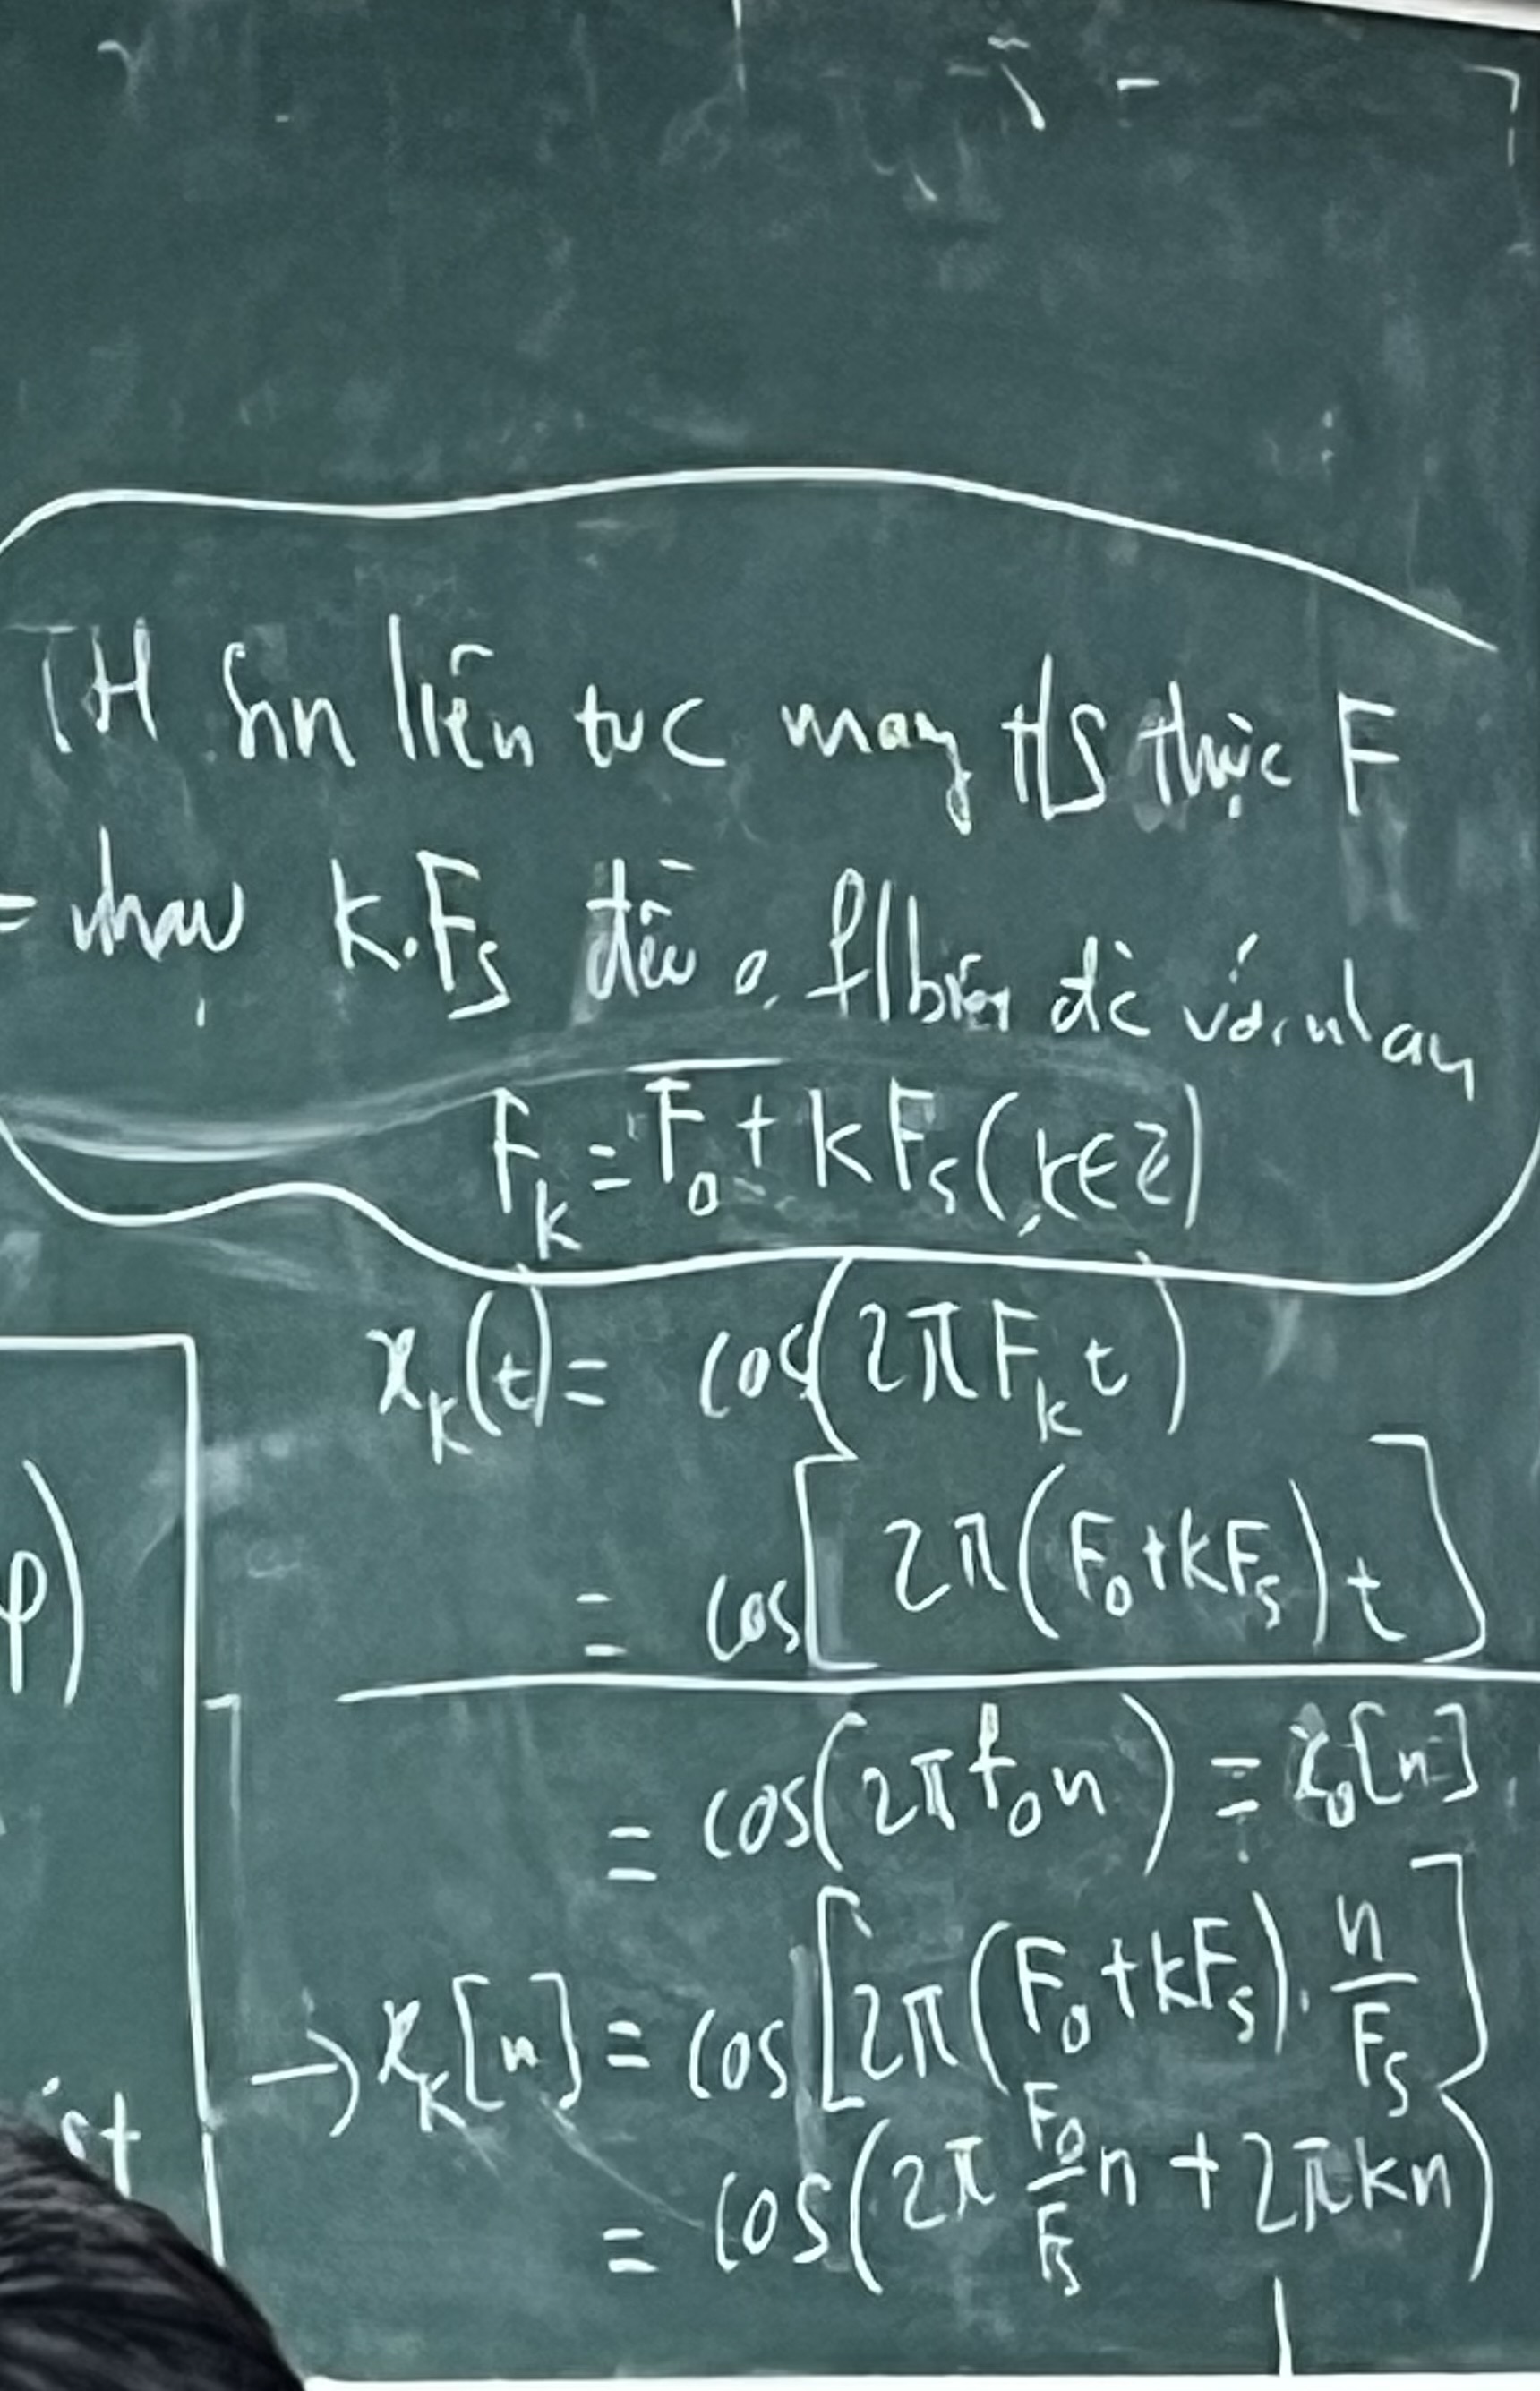 TH sin liên tục mang t/s thực F
≠ nhau k.Fs đều
với nhau
F_k = F_0 + kF_s (k∈Z)
x_k(t) = cos(2πF_k t)
= cos[2π(F_0+kF_s)t]
= cos(2πf_0n) ≡ x_0[n]
→ x_k[n] = cos[2π(F_0+kF_s).n/F_s]
= cos(2π F_0/F_s n + 2πkn)
φ)